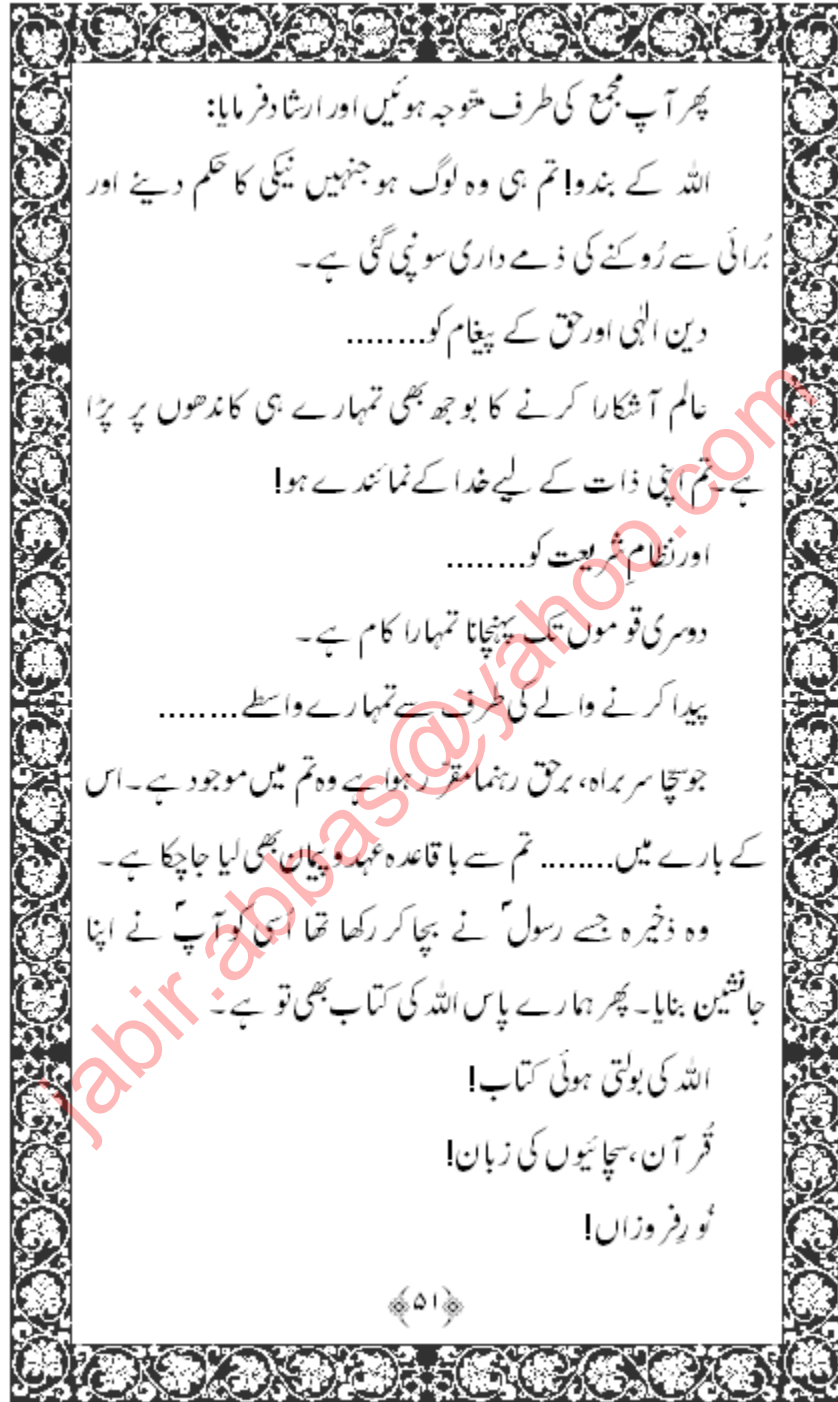 پھر آپ مجمع کی طرف متوجہ ہوئیں اور ارشاد فرمایا:
اللہ کے بندو! تم ہی وہ لوگ ہو جنہیں نیکی کا حکم دینے اور
بُرائی سے رُوکنے کی ذمے داری سونپی گئی ہے۔
دین الٰہی اور حق کے پیغام کو........
عالم آشکارا کرنے کا بوجھ بھی تمہارے ہی کاندھوں پر پڑا
ہے۔ تم اپنی ذات کے لیے خدا کے نمائندے ہو!
اور نظامِ شریعت کو........
دوسری قوموں تک پہنچانا تمہارا کام ہے۔
پیدا کرنے والے کی طرف سے تمہارے واسطے........
جو سچّا سربراہ، برحق رہنما مقرّر ہوا ہے وہ تم میں موجود ہے۔ اس
کے بارے میں........ تم سے باقاعدہ عہد و پیمان بھی لیا جاچکا ہے۔
وہ ذخیرہ جسے رسولؐ نے بچا کر رکھا تھا اُسی کو آپؐ نے اپنا
جانشین بنایا۔ پھر ہمارے پاس اللہ کی کتاب بھی تو ہے۔
اللہ کی بولتی ہوئی کتاب!
قُرآن، سچائیوں کی زبان!
نُورِ فروزاں!
﴿۵۱﴾
jabir.abbas@yahoo.com